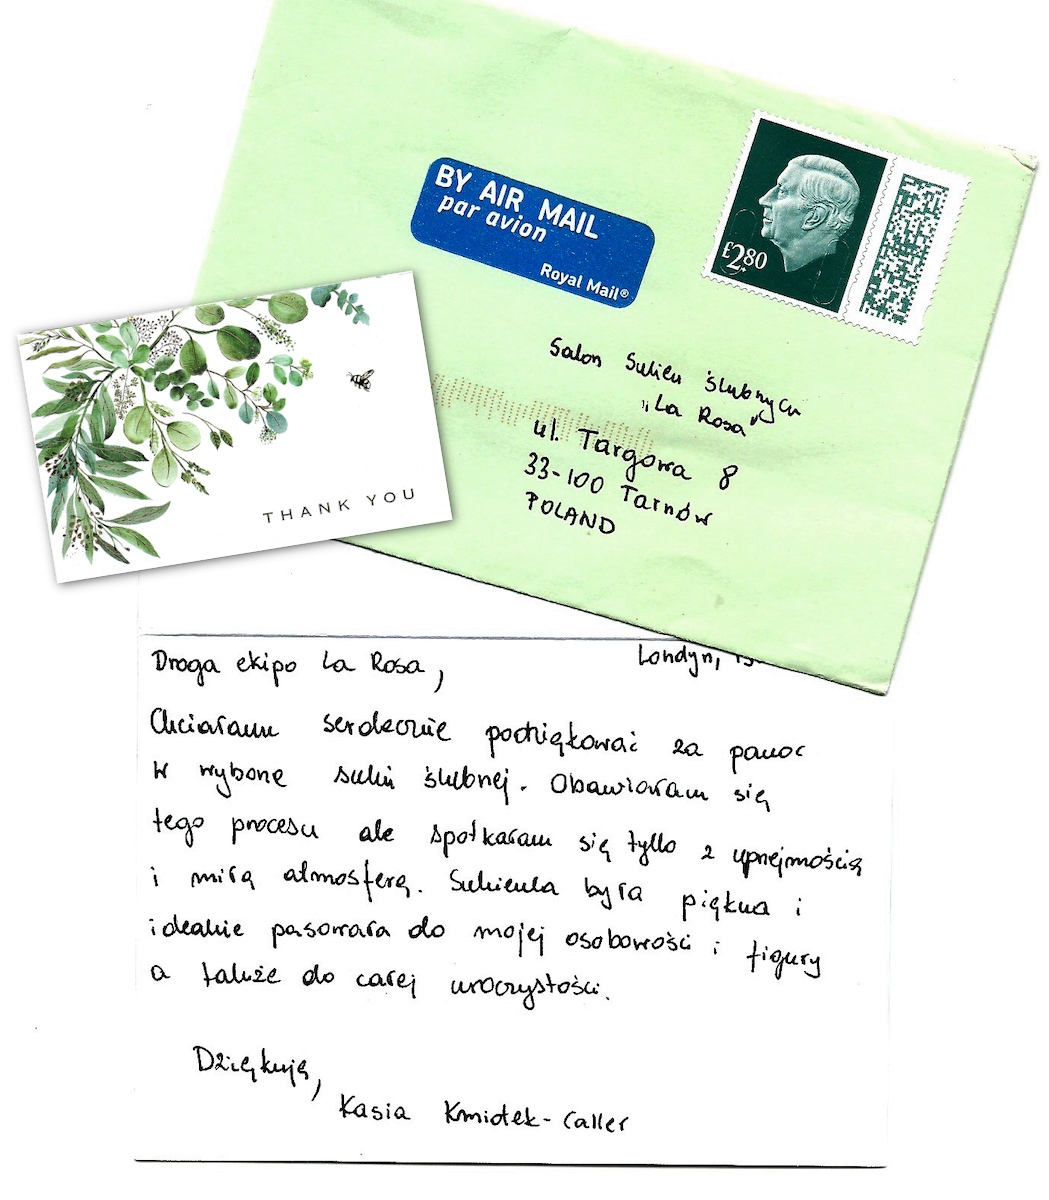 BY AIR MAIL
par avion
Royal Mail®
£2.80
Salon Sukien ślubnych
"La Rosa"
ul. Targowa 8
33-100 Tarnów
POLAND
THANK YOU
Londyn,
Droga ekipo La Rosa,
Chciałam serdecznie podziękować za pomoc
w wyborze sukni ślubnej. Obawiałam się
tego procesu ale spotkałam się tylko z uprzejmością
i miłą atmosferą. Sukienka była piękna i
idealnie pasowała do mojej osobowości i figury
a także do całej uroczystości.
Dziękuję,
Kasia Kmiotek-Caller